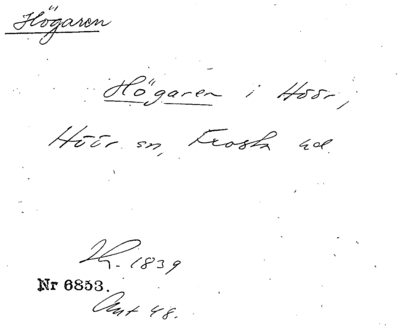 Högaren
Högaren i Höör,
Höör sn, Frosta hd.
1839
Nr 6853.
Ant 48.